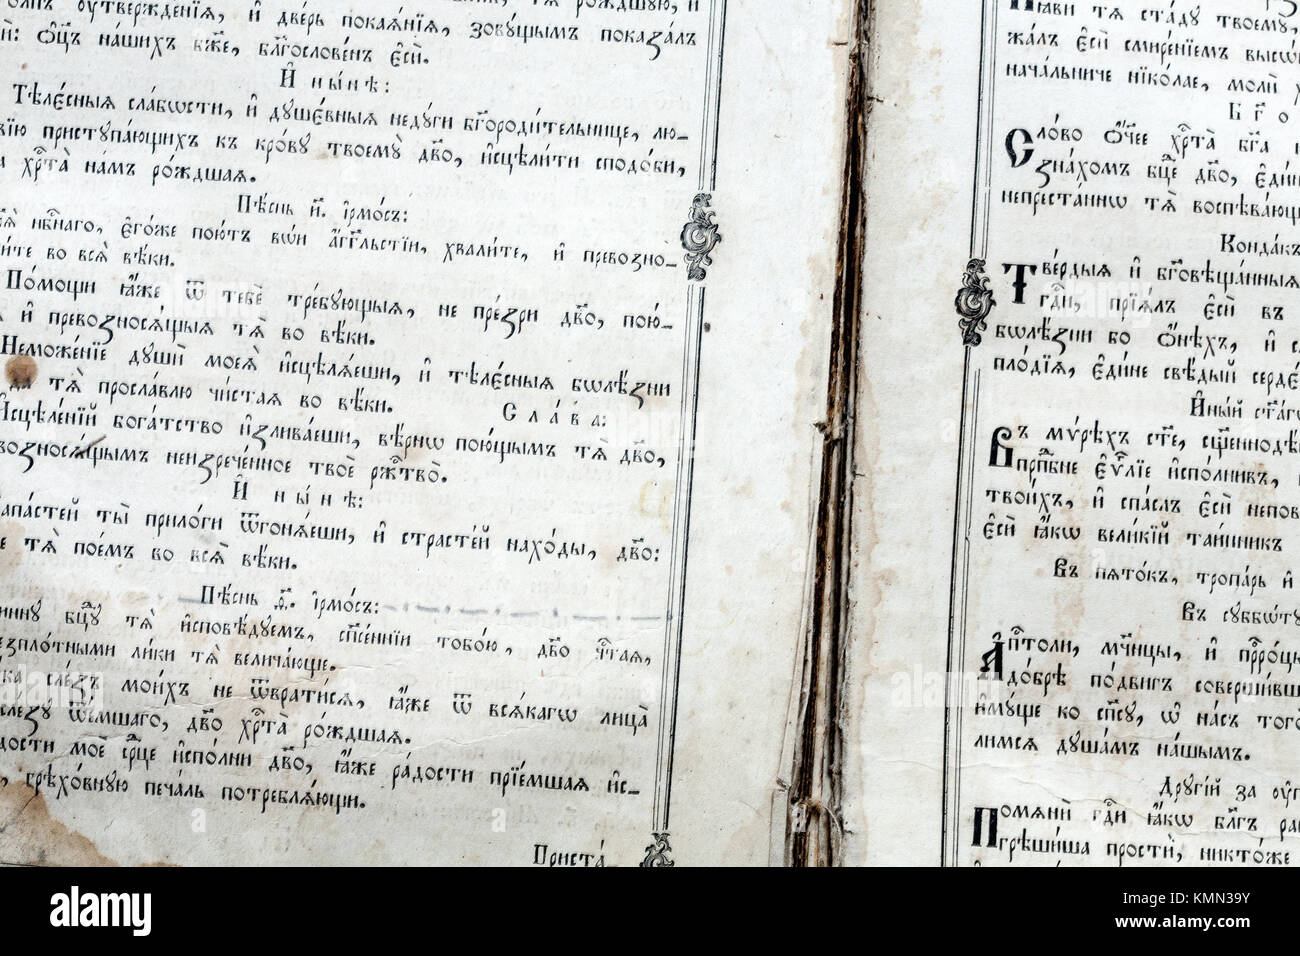 оутвержде́нїѧ, и҆ две́рь покаѧ́нїѧ, зовꙋ́щымъ показа́лъ
ѻ҆ц҃ъ на́шихъ бж҃е, блгⷭ҇ове́нъ є҆сѝ.
И҆ ны́нѣ:
Тѣлє́сныѧ сла́бѡсти, и҆ дꙋшє́вныѧ недꙋ́ги бг҃ороди́тельнице, лю-
присту­па́ющихъ къ кро́вꙋ твоемꙋ̀ дв҃о, и҆сцѣли́ти сподо́би,
хрⷭ҇та̀ на́мъ ро́ждшаѧ.
Пѣ́снь и҃. І҆рмо́съ:
нбⷭ҇наго, є҆го́же пою́тъ во́и а҆́гг҃льстїи, хвали́те, и҆ превозно-
и́те во всѧ̑ вѣ́ки.
По́мощи ꙗ҆̀же ѿ тебє̀ тре́бꙋющыѧ, не пре́зри дв҃о, пою́-
и҆ превозносѧ́щыѧ тѧ̀ во вѣ́ки.
Неможе́нїе дꙋшѝ моеѧ̀ и҆сцѣлѧ́еши, и҆ тѣлє́сныѧ бѡлѣ̑зни
да тѧ̀ просла́влю чи́стаѧ во вѣ́ки. Сла́ва:
И҆сцѣле́нїй бога́тство и҆злива́еши, вѣ́рнѡ пою́щымъ тѧ̀ дв҃о,
возносѧ́щымъ неизрече́нное твоѐ рж҃тво̀.
И҆ ны́нѣ:
апа́стей ты̀ прило́ги ѿгонѧ́еши, и҆ страсте́й нахо́ды, дв҃о:
тѧ̀ пое́мъ во всѧ̑ вѣ́ки.
Пѣ́снь ѳ҃. І҆рмо́съ:
бцⷣꙋ тѧ̀ и҆сповѣ́дꙋемъ, спⷭ҇е́ннїи тобо́ю, дв҃о чⷭ҇таѧ,
езпло́тными ли́ки тѧ̀ велича́юще.
сле́зъ мои́хъ не ѿврати́сѧ, ꙗ҆́же ѿ всѧ́кагѡ лица̀
сле́зꙋ ѿе́мшаго, дв҃о хрⷭ҇та̀ ро́ждшаѧ.
дости моѐ срⷣце и҆спо́лни дв҃о, ꙗ҆́же ра́дости прїе́мшаѧ и҆с-
грѣхо́внꙋю печа́ль потреблѧ́ющи.
Приста́
тѧ̀ ста́дꙋ твоемꙋ̀,
жа́лъ є҆сѝ смире́нїемъ
нача́льниче нїко́лае, молѝ
Бг҃о
Сло́во ѻ҆́чее хрⷭ҇та̀ бг҃а
зна́хомъ бцⷣе дв҃о, є҆ди́н
непреста́ннѡ тѧ̀ воспѣва́ющ
Конда́къ
Тве́рдыѧ и҆ бг҃овѣща́нныѧ
гдⷭ҇и, прїѧ́лъ є҆сѝ въ
бѡлѣ̑зни бо ѻ҆́нѣхъ, и҆
пло́дїѧ, є҆ди́не свѣ́дый серде́
И҆ны́й ст҃а́гѡ
Въ мѷ́рѣхъ ст҃е, сщ҃еннодѣ́
прпⷣбне є҆ѵⷢ҇лїе и҆спо́лнивъ,
твои́хъ, и҆ спа́слъ є҆сѝ непов
є҆сѝ ꙗ҆́кѡ вели́кїй таи́нникъ
Въ пѧто́къ, тропа́рь и҆
Въ сꙋббѡ́тꙋ
А҆пⷭ҇толи, мч҃нцы, и҆ прⷪ҇ро́цы
до́брѣ по́двигъ соверши́вш
и҆мꙋ́ще ко сп҃сꙋ, ѡ҆ на́съ того̀
лимсѧ дꙋша́мъ на́шымъ.
Дрꙋгі́й за оуп
Помѧнѝ гдⷭ҇и ꙗ҆́кѡ бл҃гъ ра
грѣши́ша простѝ, никто́же
alamy stock photo
KMN39Y
www.alamy.com